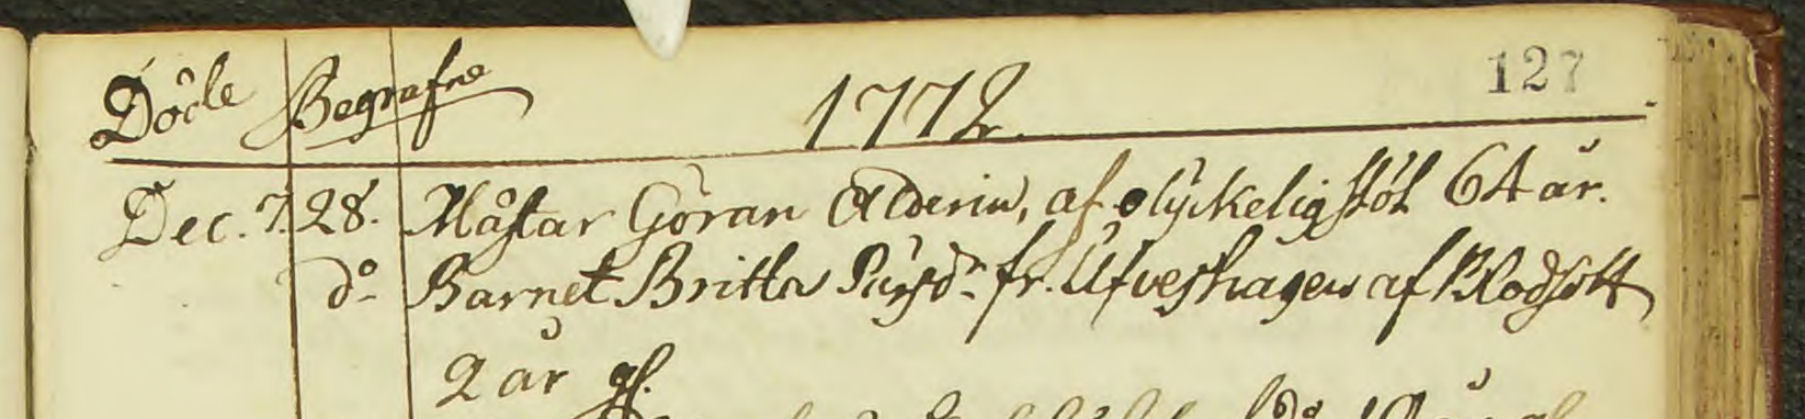 Döde Begrafne 1772. 127
Dec. 7. 28. Måstar Göran Alderin, af olyckelig stöt 64 år.
do Barnet Britta Persdr. fr. Ufveshagen af Rödsott
2 år gl.